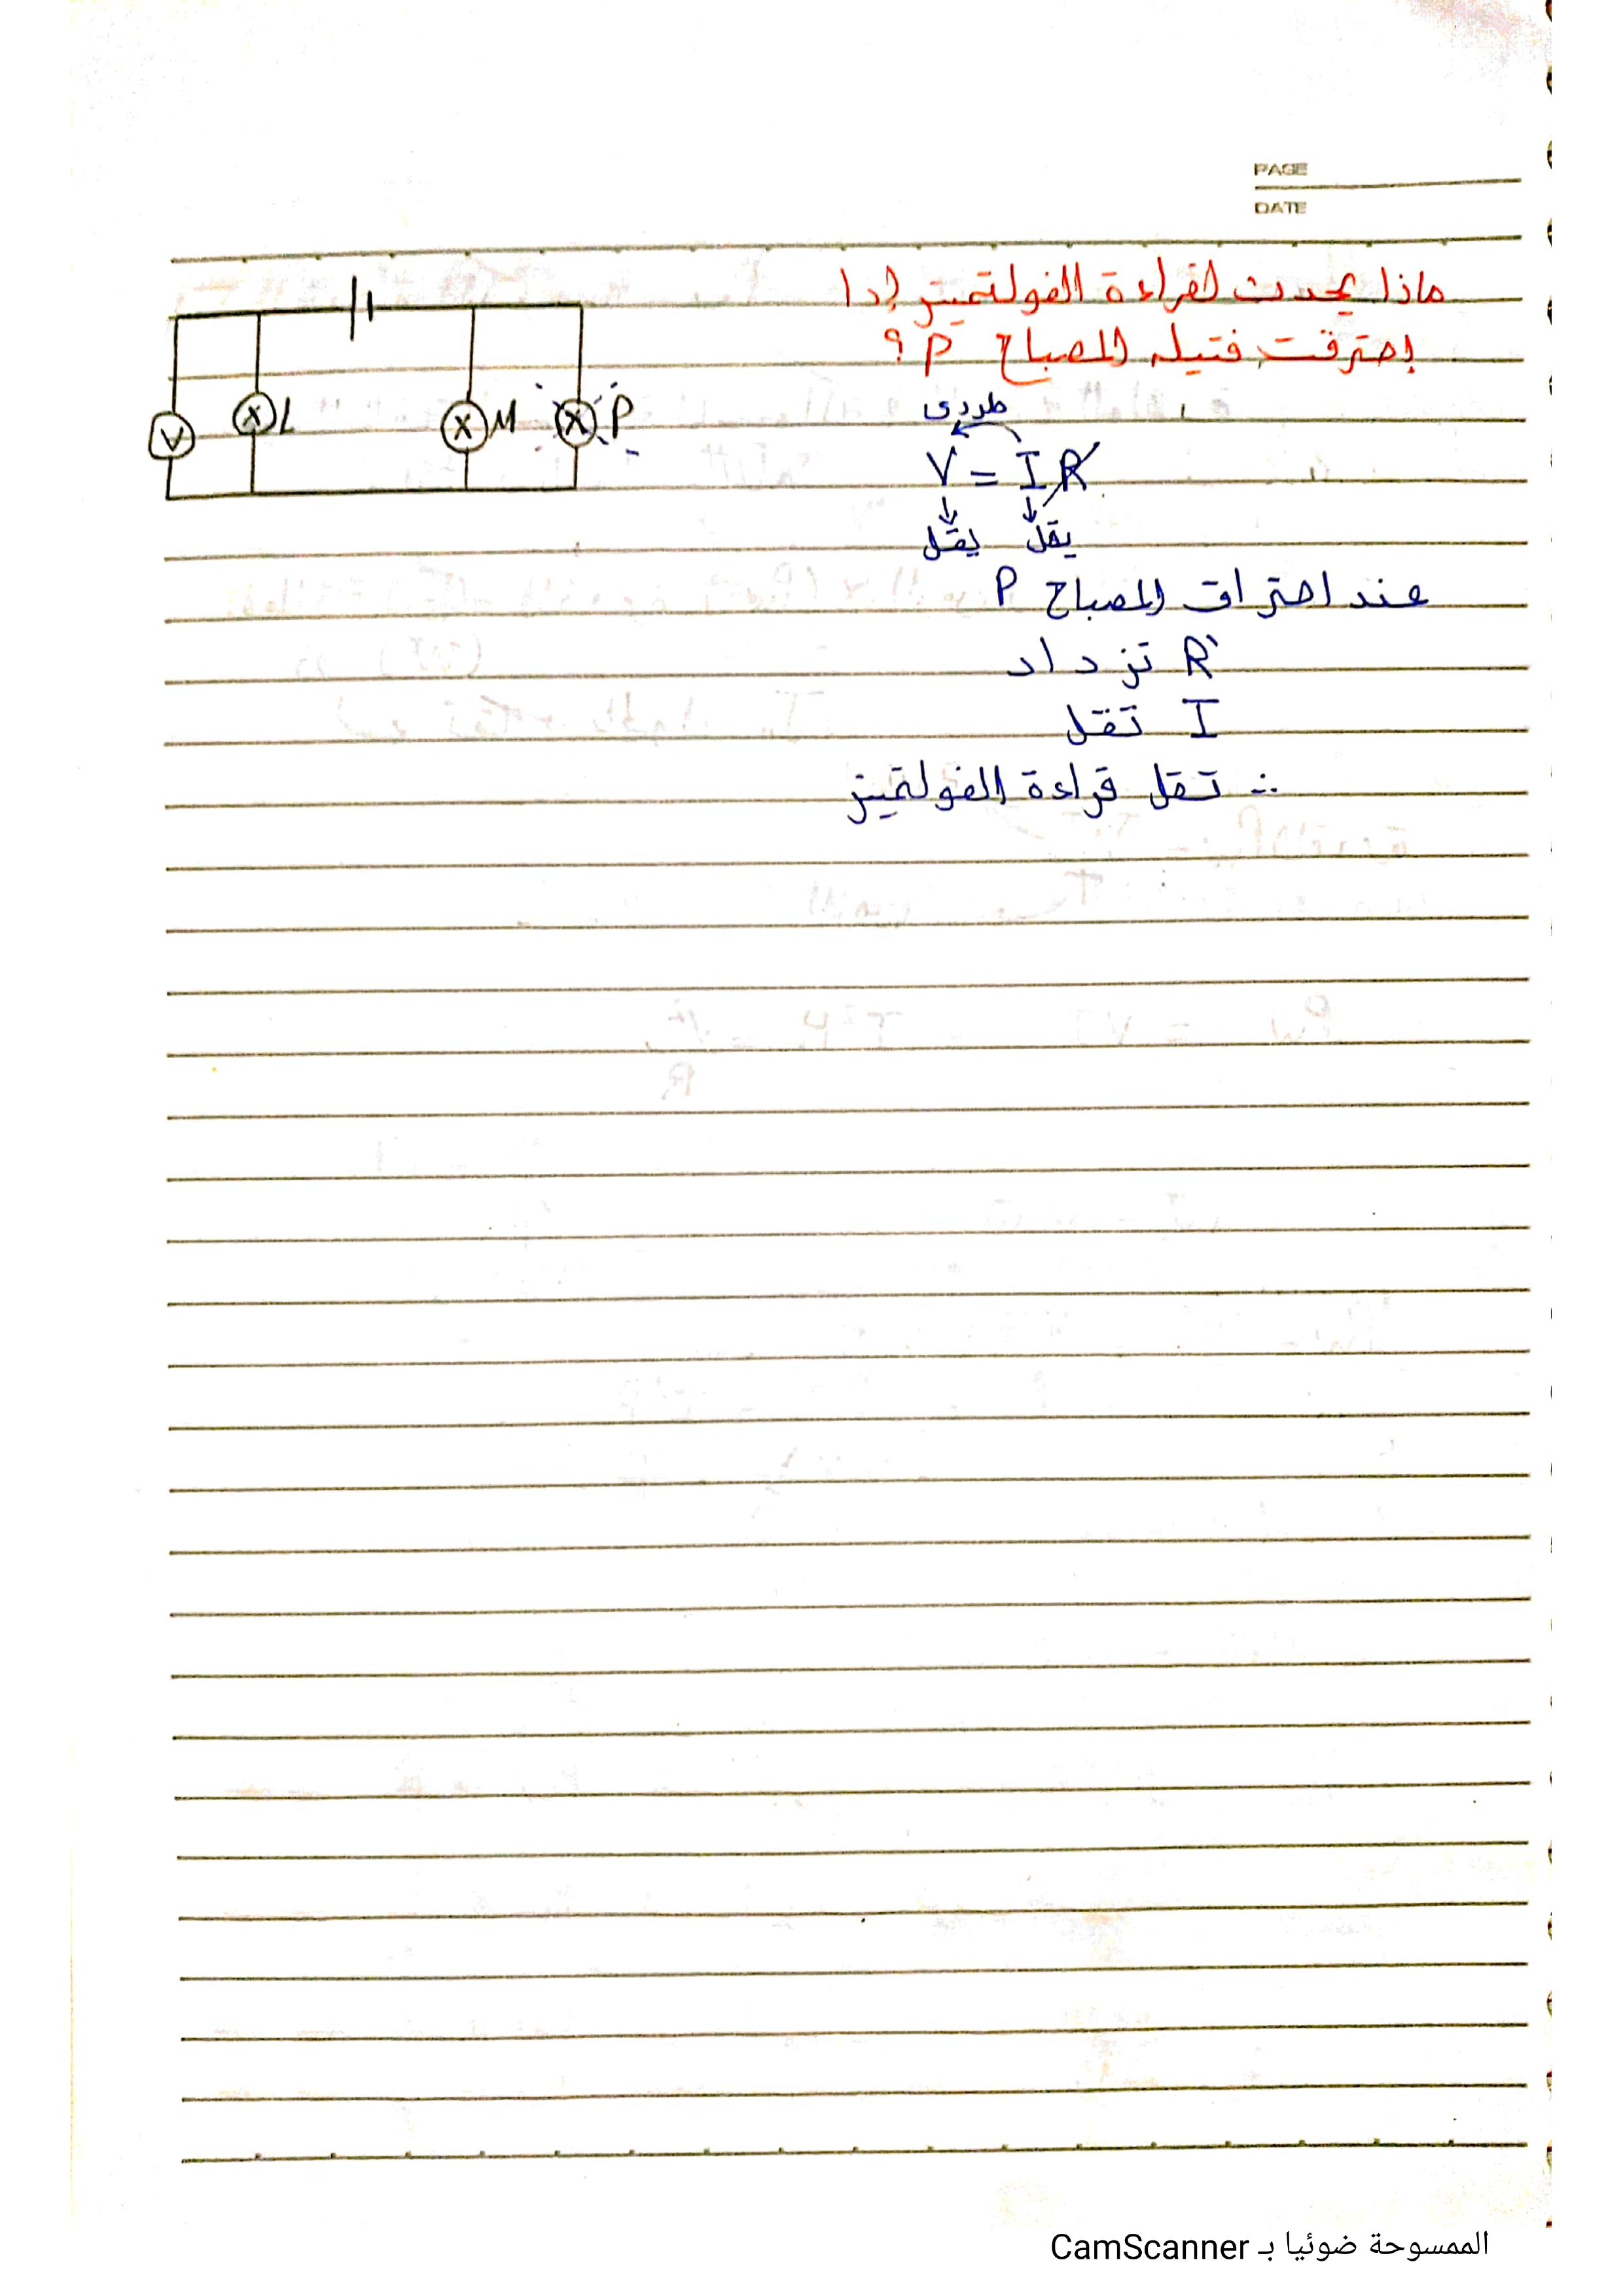 PAGE
DATE
ماذا يحدث لقراءة الفولتميتر إذا
إحترقت فتيله المصباح P ؟
V
L
M
P
طردى
V = I R
يقل يقل
عند احتراق المصباح P
R' تزداد
I تقل
∴ تقل قراءة الفولتميتر
الممسوحة ضوئيا بـ CamScanner